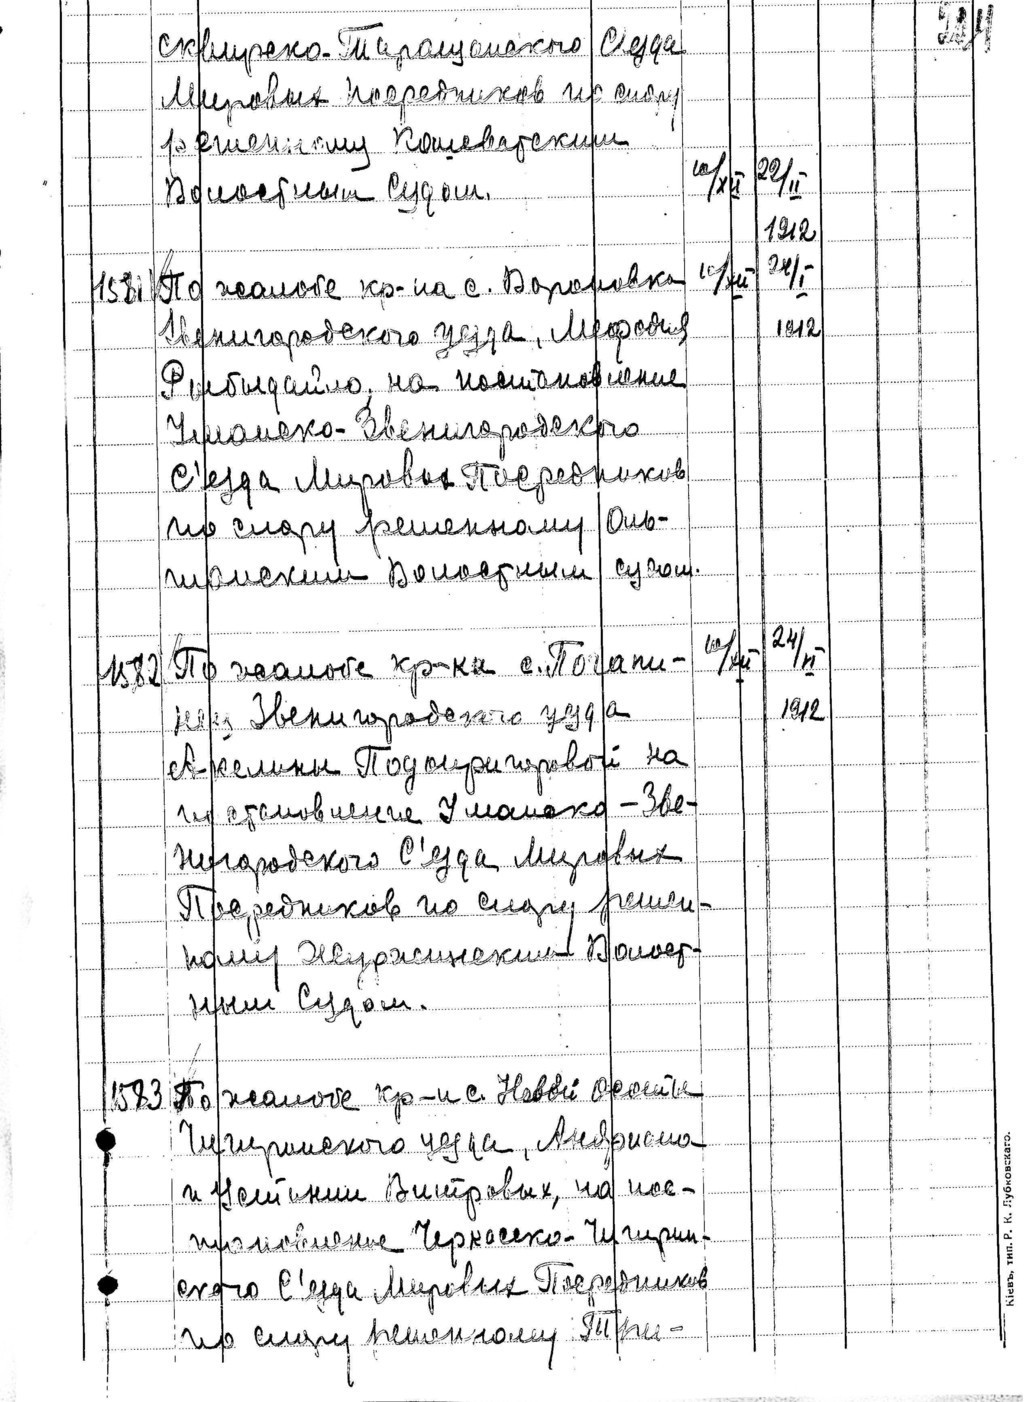 сквирско-Таращанского С'езда
Мировых Посредников по спору
решенному Кошеватским
Волостным Судом. 10/XII 22/II
1912
1581 По жалобе кр-на с. Вороновка 10/XII 24/I
Звенигородского уезда, Мефодия 1912
Рыбыдайло, на постановление
Уманско-Звенигородского
С'езда Мировых Посредников
по спору решенному Оль-
шанским Волостным судом.
1582 По жалобе кр-ки с. Потапи- 10/XII 24/II
нец Звенигородского уезда 1912
Акелины Подопригоровой на
постановление Уманско-Зве-
нигородского С'езда Мировых
Посредников по спору решен-
ному Журжинским Волост-
ным Судом.
1583 По жалобе кр-н с. Новой Осоты
Чигиринского уезда, Андриана
и Устинии Витровых, на пос-
тановление Черкасско-Чигирин-
ского С'езда Мировых Посредников
по спору решенному Три-
Кіевъ, тип. Р. К. Лубковскаго.